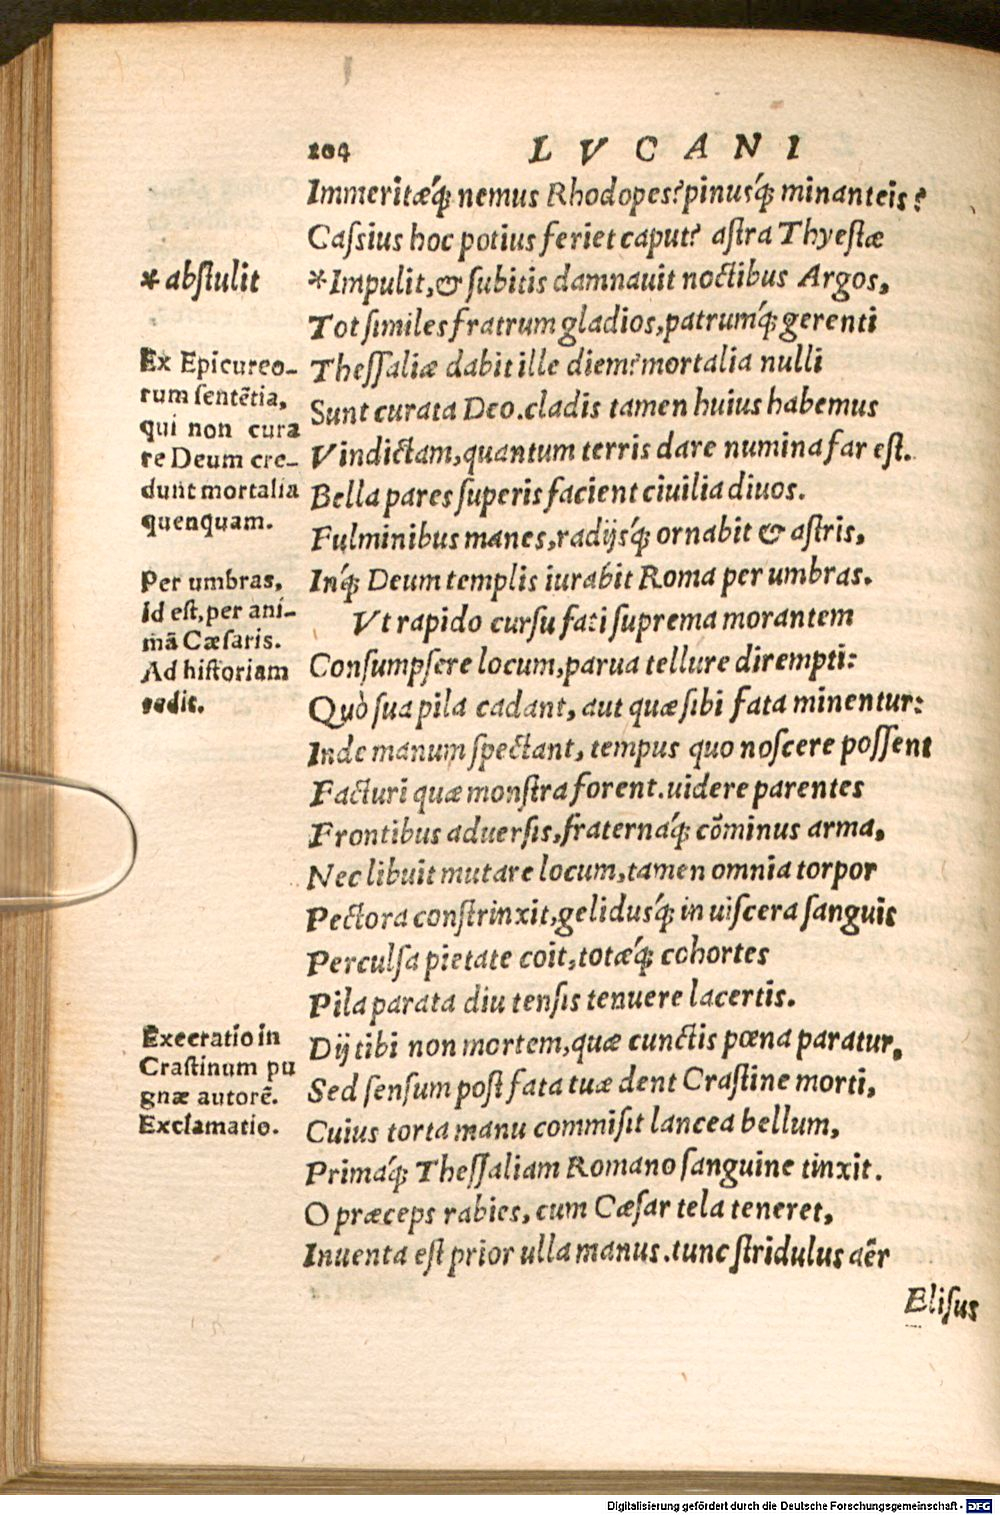 204
LVCANI
Immeritæq́; nemus Rhodopes? pinusq́; minanteis?
Caſsius hoc potius feriet caput? aſtra Thyeſtæ
*abſtulit
*Impulit, & ſubitis damnauit noctibus Argos,
Tot ſimiles fratrum gladios, patrumq́; gerenti
Ex Epicureo-
rum ſentẽtia,
qui non cura
re Deum cre-
dunt mortalia
quenquam.
Theſſaliæ dabit ille diem? mortalia nulli
Sunt curata Deo. cladis tamen huius habemus
Vindictam, quantum terris dare numina far eſt.
Bella pares ſuperis facient ciuilia diuos.
Fulminibus manes, radijsq́; ornabit & aſtris,
Per umbras,
id eſt, per ani-
mã Cæſaris.
Ad hiſtoriam
redit.
Inq́; Deum templis iurabit Roma per umbras.
Vt rapido curſu fati ſuprema morantem
Conſumpſere locum, parua tellure dirempti:
Quò ſua pila cadant, aut quæ ſibi fata minentur:
Inde manum ſpectant, tempus quo noſcere poſſent
Facturi quæ monſtra forent. uidere parentes
Frontibus aduerſis, fraternaq́; cõminus arma,
Nec libuit mutare locum, tamen omnia torpor
Pectora conſtrinxit, gelidusq́; in uiſcera ſanguis
Perculſa pietate coit, totæq́; cohortes
Pila parata diu tenſis tenuere lacertis.
Execratio in
Craſtinum pu
gnæ autorẽ.
Exclamatio.
Dij tibi non mortem, quæ cunctis pœna paratur,
Sed ſenſum poſt fata tuæ dent Craſtine morti,
Cuius torta manu commiſit lancea bellum,
Primaq́; Theſſaliam Romano ſanguine tinxit.
O præceps rabies, cum Cæſar tela teneret,
Inuenta eſt prior ulla manus. tunc ſtridulus aẽr
Eliſus
Digitalisierung gefördert durch die Deutsche Forschungsgemeinschaft - DFG